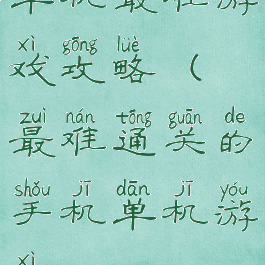 单机最难游
xì gōng lüè
戏攻略（
zuì nán tōng guān de
最难通关的
shǒu jī dān jī yóu
手机单机游
xì